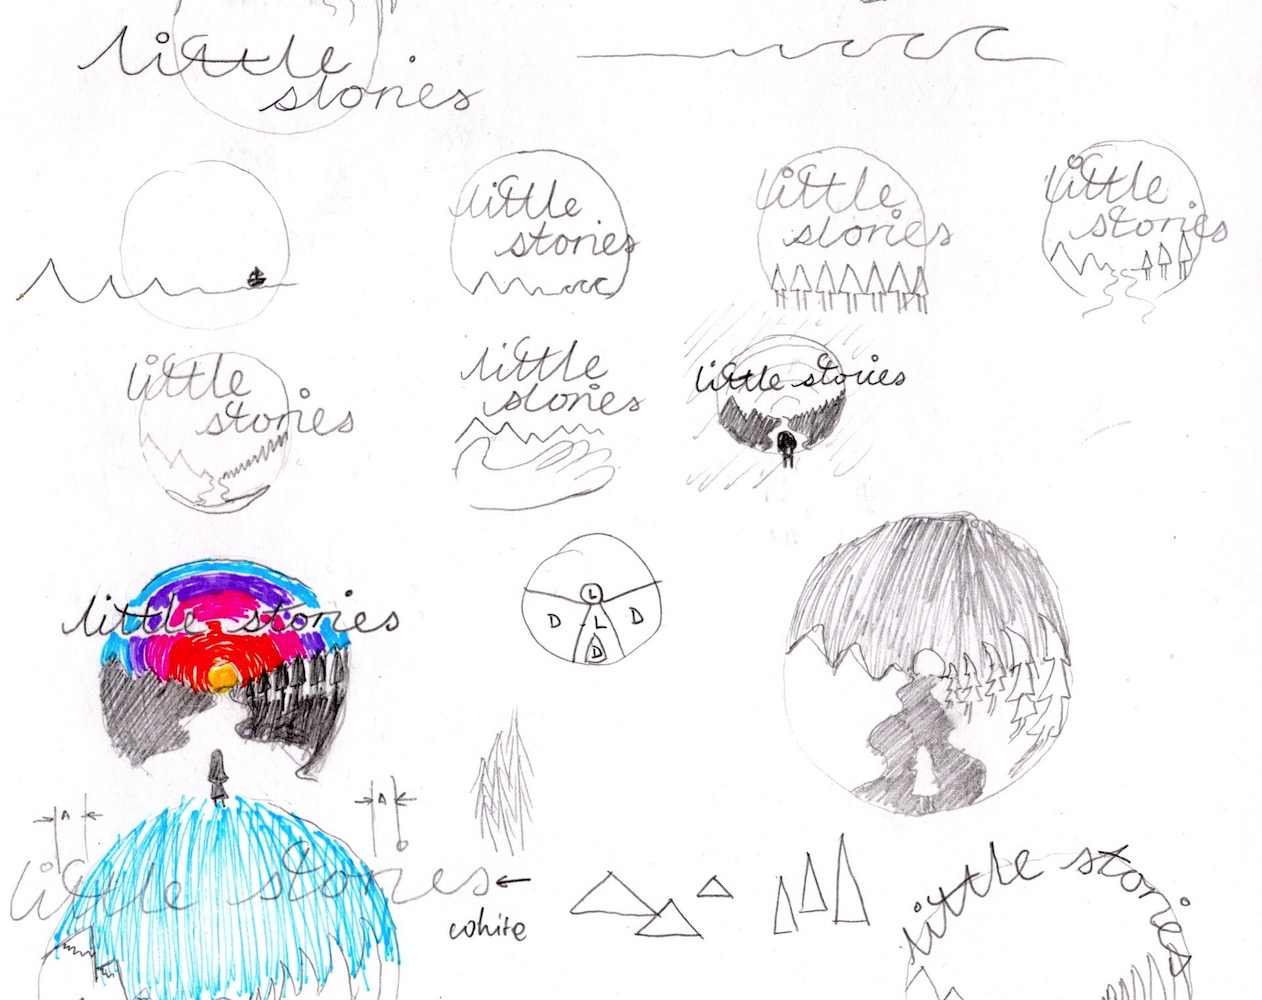 little
stories
little
stories
little
stories
little
stories
little
stories
little
stories
little stories
little stories
L
D
L
D
D
A
A
little stories
white
little stories